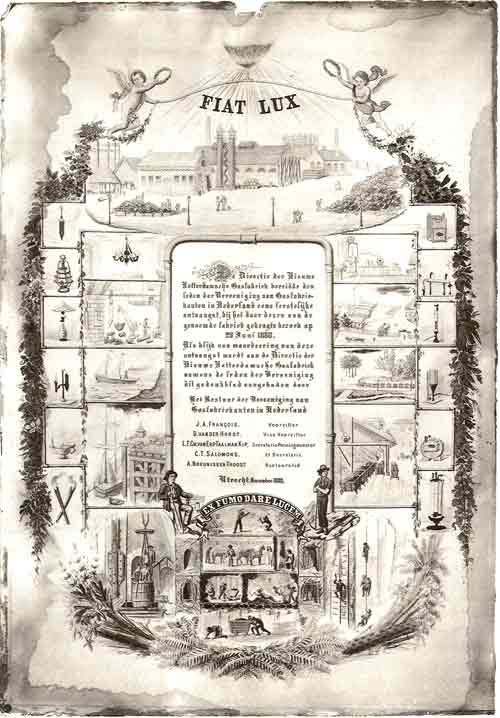 FIAT LUX
De Directie der Nieuwe
Rotterdamsche Gasfabriek bereidde den
leden der Vereeniging van Gasfabrie-
kanten in Nederland eene feestelijke
ontvangst, bij het door dezen aan de
genoemde fabriek gebragte bezoek op
29 Juni 1880.
Als blijk van waardeering van deze
ontvangst wordt aan de Directie der
Nieuwe Rotterdamsche Gasfabriek
namens de leden der Vereeniging
dit gedenkblad aangeboden door
Het Bestuur der Vereeniging van
Gasfabriekanten in Nederland
J. A. FRANÇOIS. Voorzitter
D. VAN DER HORST. Vice Voorzitter
C. T. SALOMONS. 2e Secretaris
Utrecht, November 1880.
EX FUMO DARE LUCEM